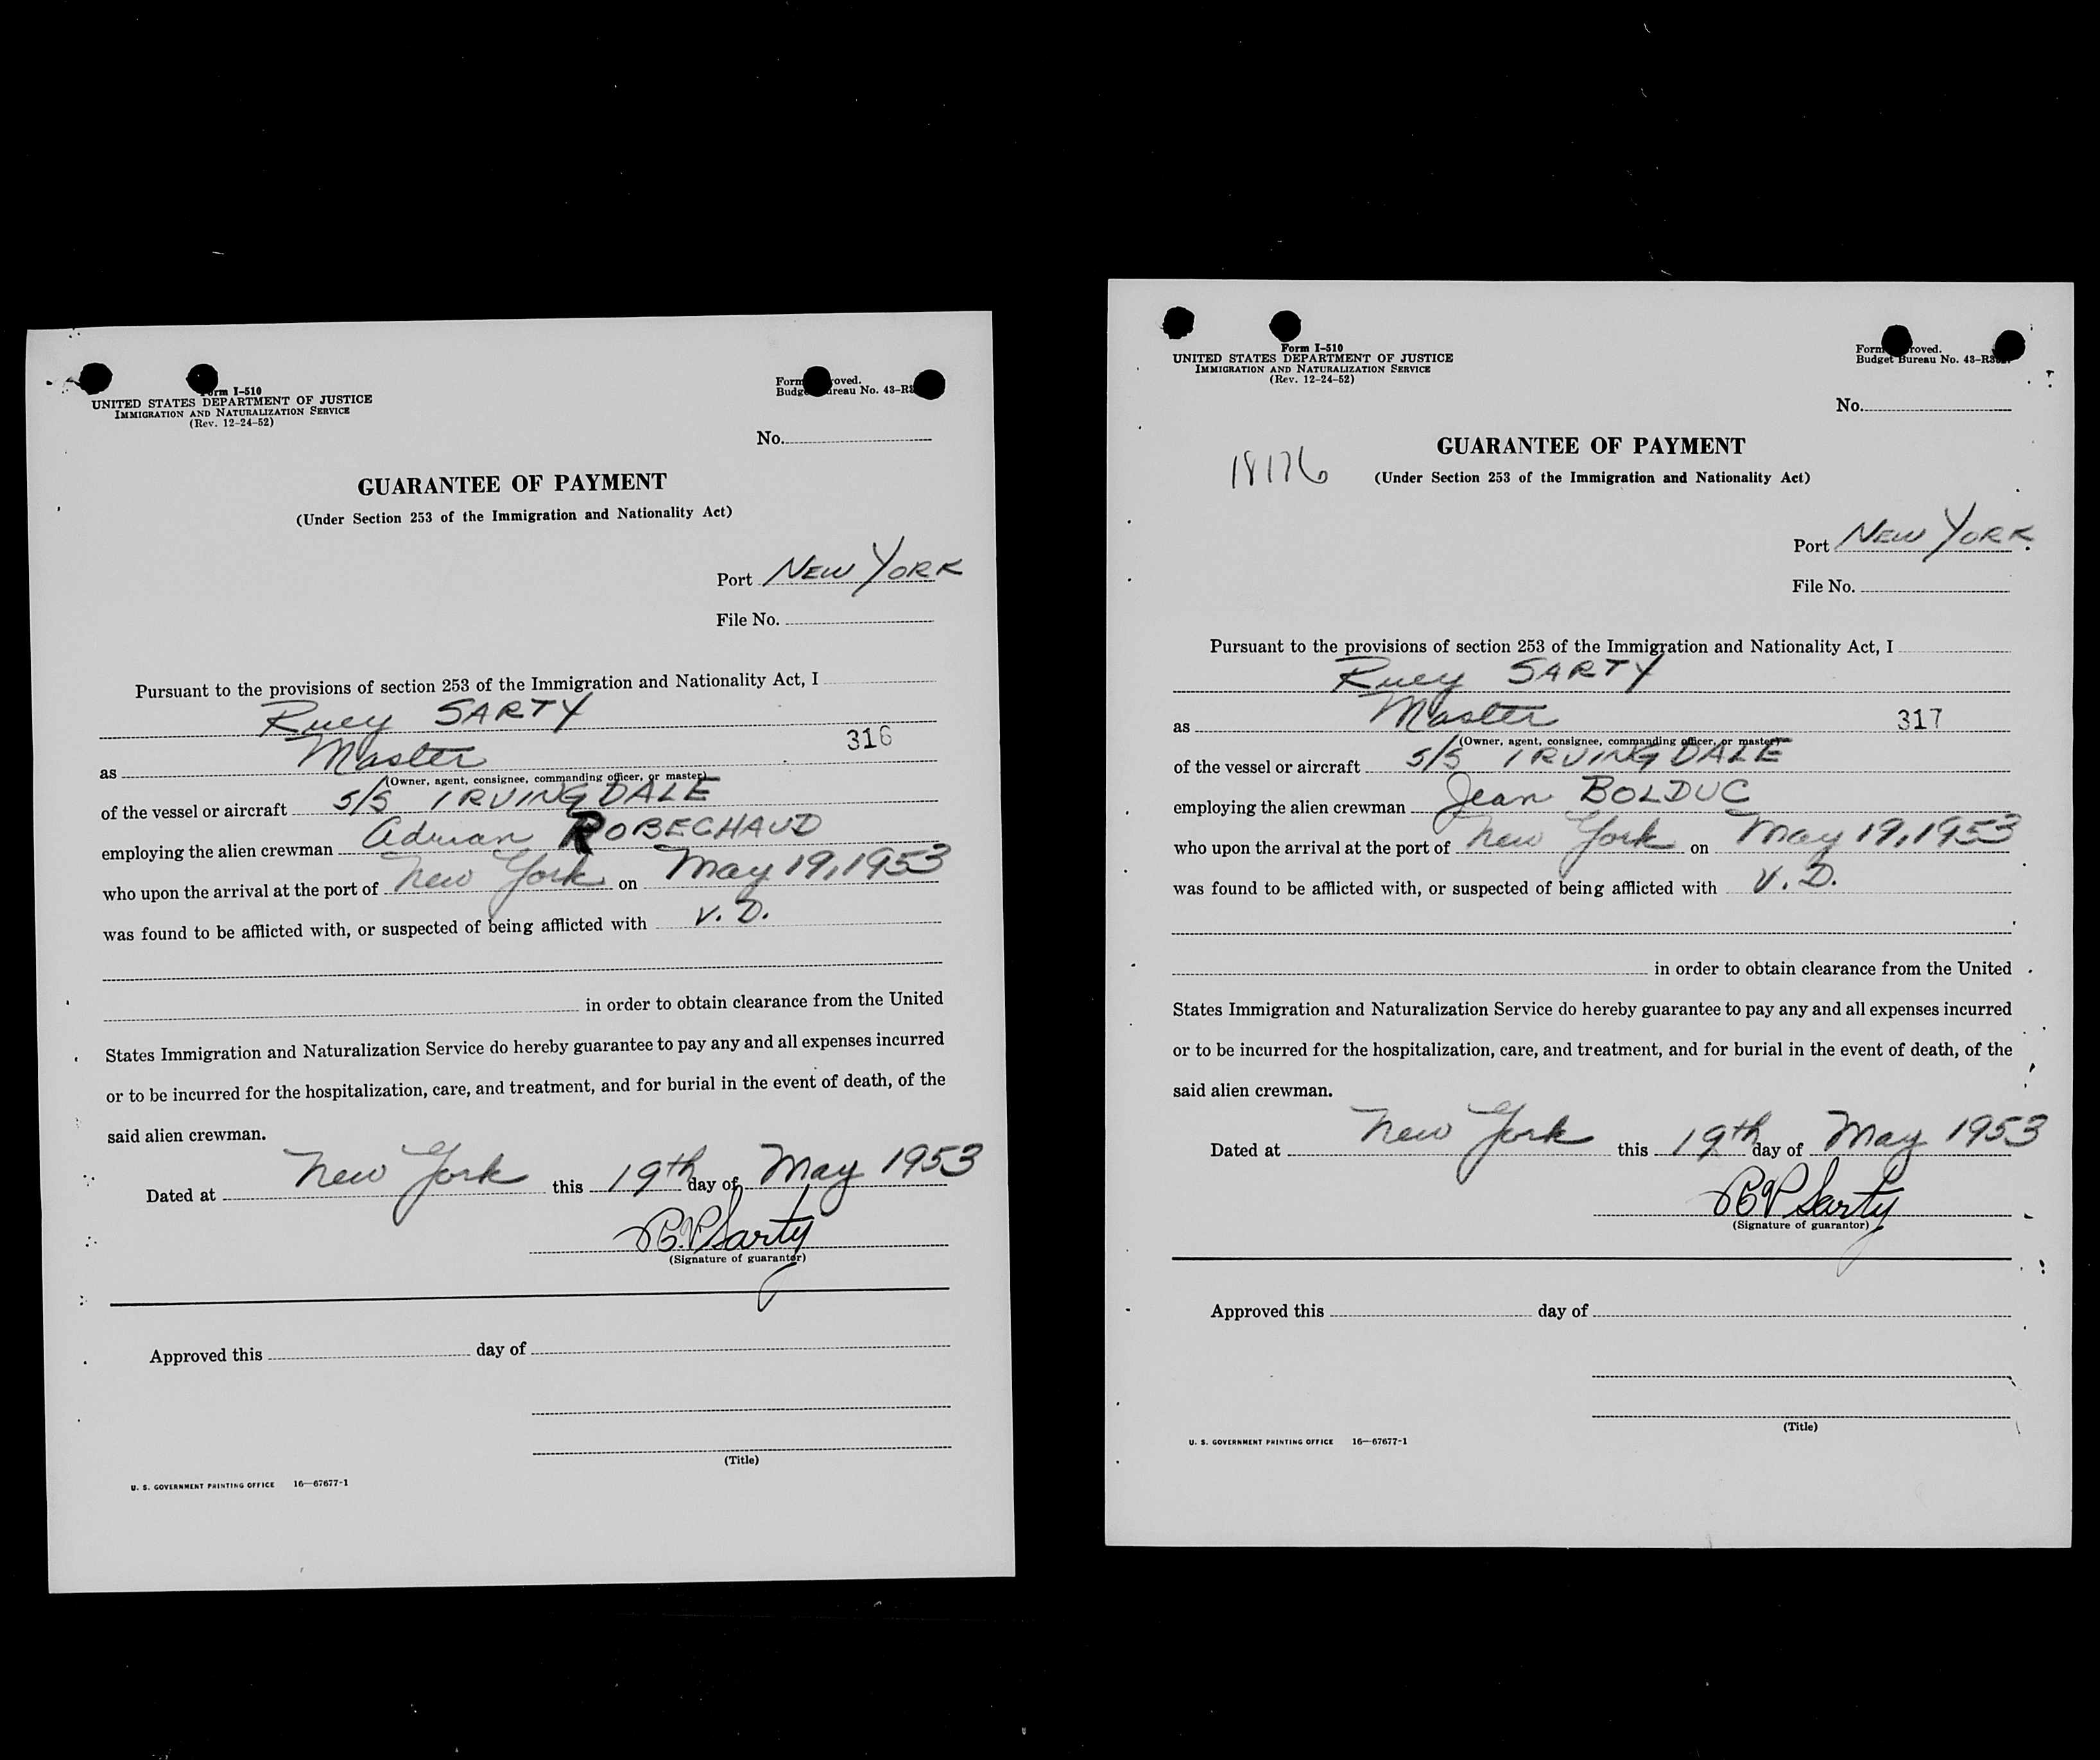 Form I-510
UNITED STATES DEPARTMENT OF JUSTICE
IMMIGRATION AND NATURALIZATION SERVICE
(Rev. 12-24-52)
Budget Bureau No. 43-R
No.
GUARANTEE OF PAYMENT
(Under Section 253 of the Immigration and Nationality Act)
Port NEW YORK
File No.
Pursuant to the provisions of section 253 of the Immigration and Nationality Act, I
Ruey SARTY
316
as Master
(Owner, agent, consignee, commanding officer, or master)
of the vessel or aircraft S/S IRVINGDALE
employing the alien crewman Adrian ROBECHAUD
who upon the arrival at the port of New York on May 19, 1953
was found to be afflicted with, or suspected of being afflicted with V. D.
in order to obtain clearance from the United
States Immigration and Naturalization Service do hereby guarantee to pay any and all expenses incurred
or to be incurred for the hospitalization, care, and treatment, and for burial in the event of death, of the
said alien crewman.
Dated at New York this 19th day of May 1953
Sarty
(Signature of guarantor)
Approved this day of
(Title)
U. S. GOVERNMENT PRINTING OFFICE 16—67677-1
Form I-510
UNITED STATES DEPARTMENT OF JUSTICE
IMMIGRATION AND NATURALIZATION SERVICE
(Rev. 12-24-52)
Budget Bureau No. 43-R
No.
GUARANTEE OF PAYMENT
18176
(Under Section 253 of the Immigration and Nationality Act)
Port NEW YORK
File No.
Pursuant to the provisions of section 253 of the Immigration and Nationality Act, I
Ruey SARTY
as Master 317
(Owner, agent, consignee, commanding officer, or master)
of the vessel or aircraft S/S IRVINGDALE
employing the alien crewman Jean BOLDUC
who upon the arrival at the port of New York on May 19, 1953
was found to be afflicted with, or suspected of being afflicted with V. D.
in order to obtain clearance from the United
States Immigration and Naturalization Service do hereby guarantee to pay any and all expenses incurred
or to be incurred for the hospitalization, care, and treatment, and for burial in the event of death, of the
said alien crewman.
Dated at New York this 19th day of May 1953
Sarty
(Signature of guarantor)
Approved this day of
(Title)
U. S. GOVERNMENT PRINTING OFFICE 16—67677-1